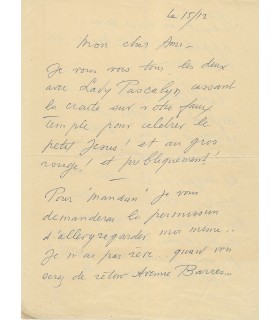 le 15/12
Mon cher Ami -
Je vous vois tous les deux
avec Lady Pascalyn cassant
la croûte sur votre faux
temple pour célébrer le
petit Jésus! et au gros
rouge! et publiquement!
Pour "mandan" je vous
demanderai la permission
d'aller regarder moi même..
Je n'ai pas rêvé.... quand vous
serez de retour Avenue Barrès...